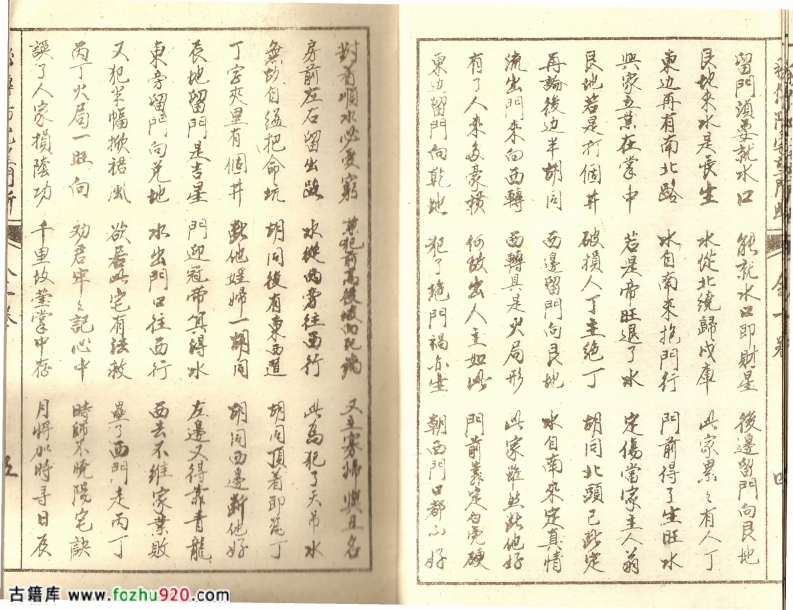 留門須要就水口　能就水口即財星　後邊留門向艮地
艮地來水是長生　水從北繞歸戌庫　此家累々有人丁
東边再有南北路　水自南來抱門行　門前得了生旺水
興家立業在掌中　若是帝旺退了水　定傷當家主人翁
艮地若是打個井　破損人丁主絶丁　胡同北頭已此定
再論後边半胡同　西邊留門向艮地　水自南來定真情
流出門來向西轉　西轉具是火局形　此家雖然此他好
有了人來多豪橫　何故出人主如此　門前靠定白虎硬
東边留門向乾地　犯了絶門禍亦生　朝西門口都山好
對着順水必受窮　其犯前高後坡　又主寡婦興且名
房前左右留出路　水從西旁往西行　此為犯了天吊水
無故自縊把命坑　胡同後有東西道　胡同頂着即為丁
丁字夾里有個井　此他娌婦一胡同　胡同西邊断他好
辰地留門是吉星　門迎冠帶算得水　左邊又得靠青龍
東旁留門向兌地　水出門口往西行　西去不維家業敗
又犯半幅掀裙風　欲居此宅有法救　壘了西門走丙丁
丙丁火局一旺向　劝君牢々記心中　時師不曉陽宅訣
誤了人家損陰功　千里故業掌中存　月將加時尋日辰
四
五
古籍库 www.fozhu920.com